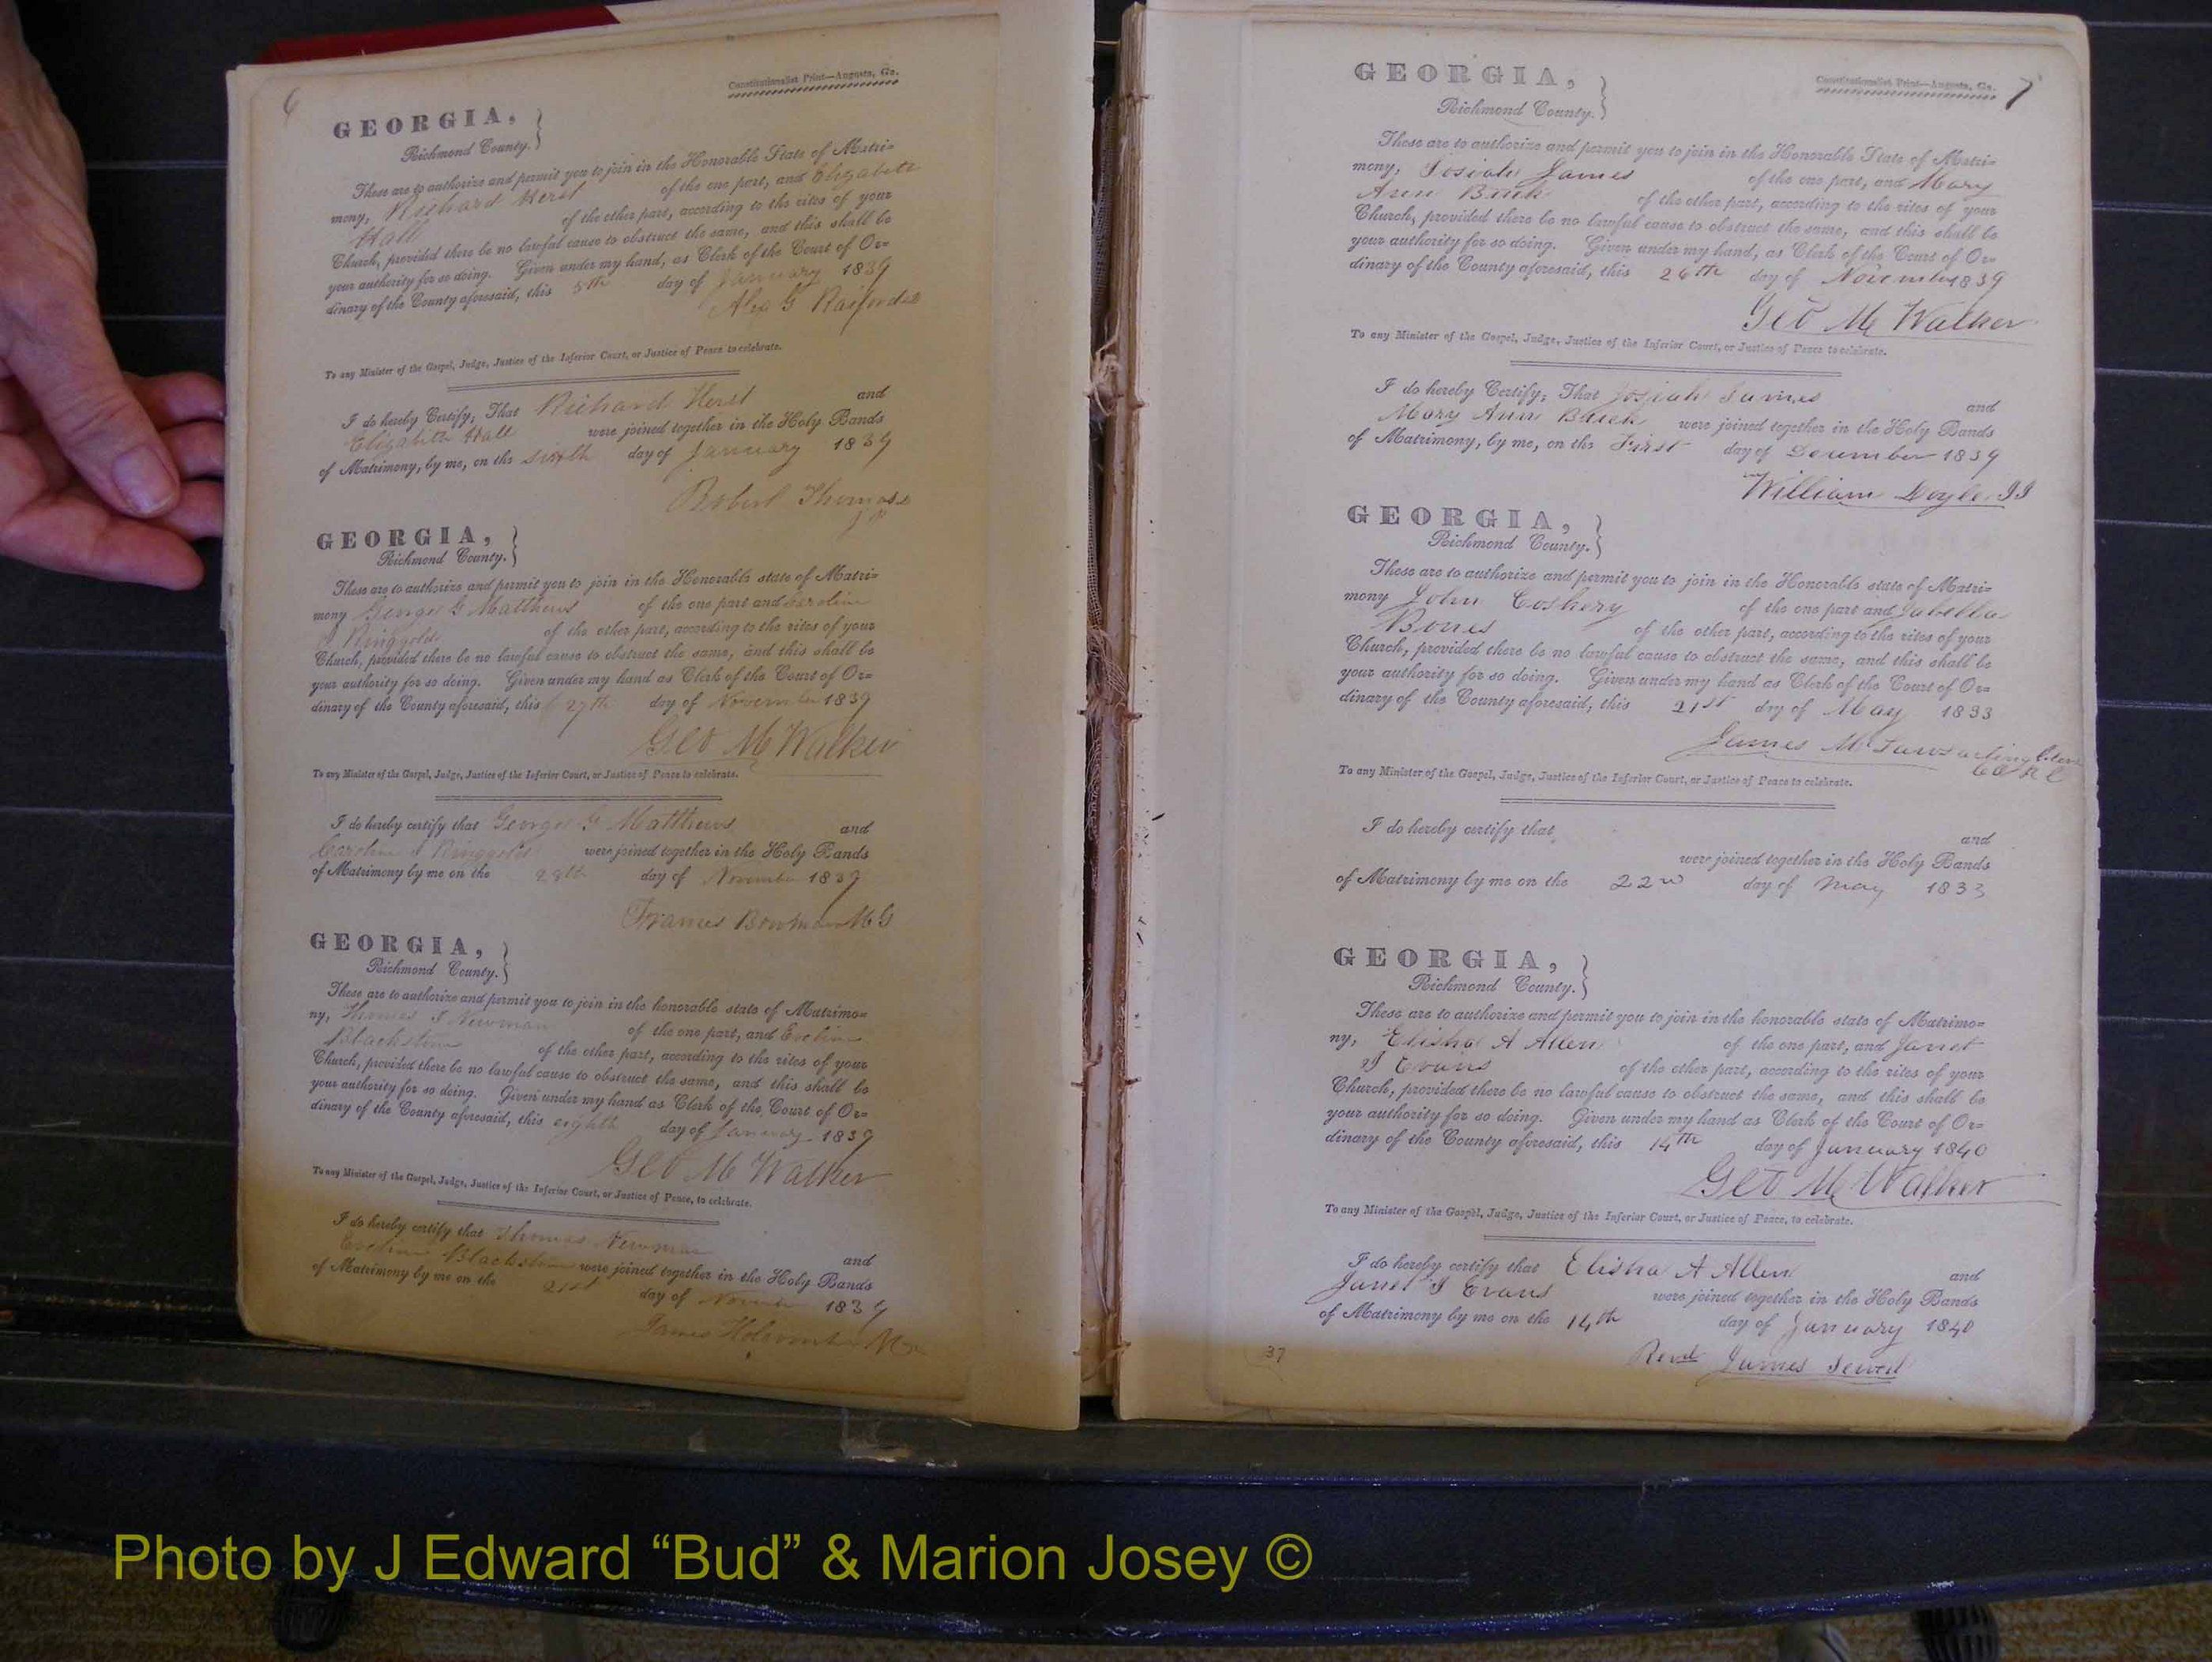 6
Constitutionalist Print—Augusta, Ga.
GEORGIA,
Richmond County.
These are to authorize and permit you to join in the Honorable State of Matri-
mony, Richard Herst of the one part, and Elizabeth
Hall of the other part, according to the rites of your
Church, provided there be no lawful cause to obstruct the same, and this shall be
your authority for so doing. Given under my hand, as Clerk of the Court of Or-
dinary of the County aforesaid, this 5th day of January 1839
Alex G
To any Minister of the Gospel, Judge, Justice of the Inferior Court, or Justice of Peace to celebrate.
I do hereby Certify, That Richard Herst and
Elizabeth Hall were joined together in the Holy Bands
of Matrimony, by me, on the sixth day of January 1839
Robert Thomas
GEORGIA,
Richmond County.
These are to authorize and permit you to join in the Honorable state of Matri-
mony George G Matthews of the one part and Caroline
Ringgold of the other part, according to the rites of your
Church, provided there be no lawful cause to obstruct the same, and this shall be
your authority for so doing. Given under my hand as Clerk of the Court of Or-
dinary of the County aforesaid, this 27th day of November 1839
Geo M Walker
To any Minister of the Gospel, Judge, Justice of the Inferior Court, or Justice of Peace to celebrate.
I do hereby certify that George G Matthews and
Caroline Ringgold were joined together in the Holy Bands
of Matrimony by me on the 28th day of November 1839
Bowman M G
GEORGIA,
Richmond County.
These are to authorize and permit you to join in the honorable state of Matrimo-
ny, Thomas Newman of the one part, and Eveline
of the other part, according to the rites of your
Church, provided there be no lawful cause to obstruct the same, and this shall be
your authority for so doing. Given under my hand as Clerk of the Court of Or-
dinary of the County aforesaid, this eighth day of January 1839
Geo M Walker
To any Minister of the Gospel, Judge, Justice of the Inferior Court, or Justice of Peace, to celebrate.
I do hereby certify that Thomas Newman and
Eveline were joined together in the Holy Bands
of Matrimony by me on the 21st day of 1839
James
7
Constitutionalist Print—Augusta, Ga.
GEORGIA,
Richmond County.
These are to authorize and permit you to join in the Honorable State of Matri-
mony, Josiah James of the one part, and Mary
Ann of the other part, according to the rites of your
Church, provided there be no lawful cause to obstruct the same, and this shall be
your authority for so doing. Given under my hand, as Clerk of the Court of Or-
dinary of the County aforesaid, this day of November 1839
Geo M Walker
To any Minister of the Gospel, Judge, Justice of the Inferior Court, or Justice of Peace to celebrate.
I do hereby Certify, That Josiah James and
Mary Ann were joined together in the Holy Bands
of Matrimony, by me, on the First day of December 1839
William Doyle
GEORGIA,
Richmond County.
These are to authorize and permit you to join in the Honorable state of Matri-
mony John Coskery of the one part and Isabella
Bones of the other part, according to the rites of your
Church, provided there be no lawful cause to obstruct the same, and this shall be
your authority for so doing. Given under my hand as Clerk of the Court of Or-
dinary of the County aforesaid, this 21st day of May 1833
James
To any Minister of the Gospel, Judge, Justice of the Inferior Court, or Justice of Peace to celebrate.
I do hereby certify that and
were joined together in the Holy Bands
of Matrimony by me on the 22nd day of May 1833
GEORGIA,
Richmond County.
These are to authorize and permit you to join in the honorable state of Matrimo-
ny, Elisha A Allen of the one part, and Janet
Evans of the other part, according to the rites of your
Church, provided there be no lawful cause to obstruct the same, and this shall be
your authority for so doing. Given under my hand as Clerk of the Court of Or-
dinary of the County aforesaid, this 14th day of January 1840
Geo M Walker
To any Minister of the Gospel, Judge, Justice of the Inferior Court, or Justice of Peace, to celebrate.
I do hereby certify that Elisha A Allen and
Janet Evans were joined together in the Holy Bands
of Matrimony by me on the 14th day of January 1840
Revd James
37
Photo by J Edward “Bud” & Marion Josey ©